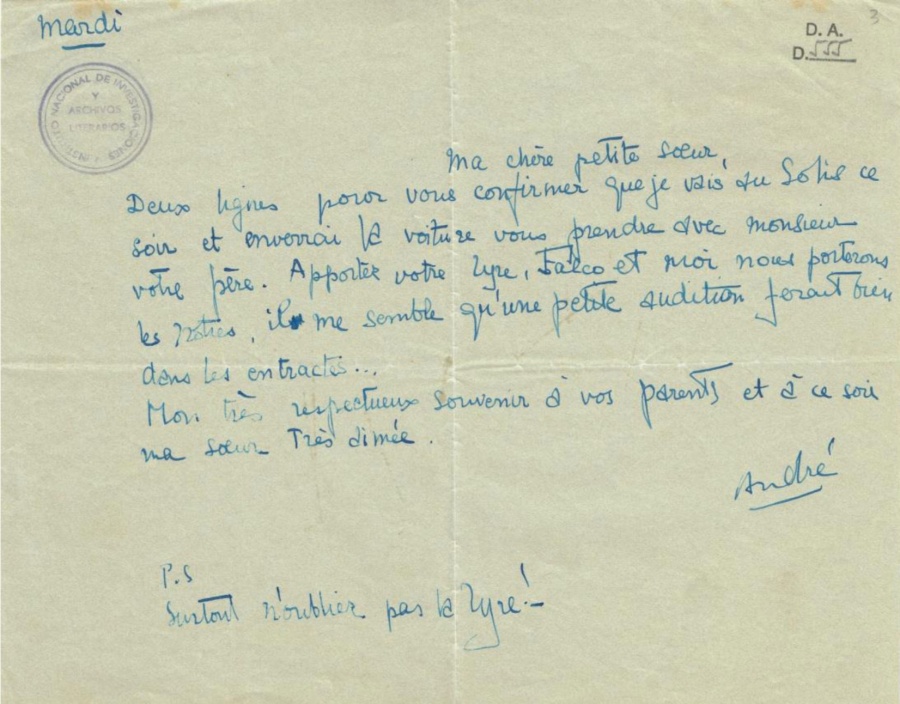 Mardi
3
D. A.
D. 555
INSTITUTO NACIONAL DE INVESTIGACIONES
Y
ARCHIVOS
LITERARIOS
Ma chère petite sœur,
Deux lignes pour vous confirmer que je vais au Solis ce
soir et enverrai la voiture vous prendre avec monsieur
votre père. Apportez votre lyre, Falco et moi nous porterons
les notres, il me semble qu'une petite audition ferait bien
dans les entractes...
Mon très respectueux souvenir à vos parents et à ce soir
ma sœur très aimée.
André
P.S
Surtout n'oublier pas la lyre!-